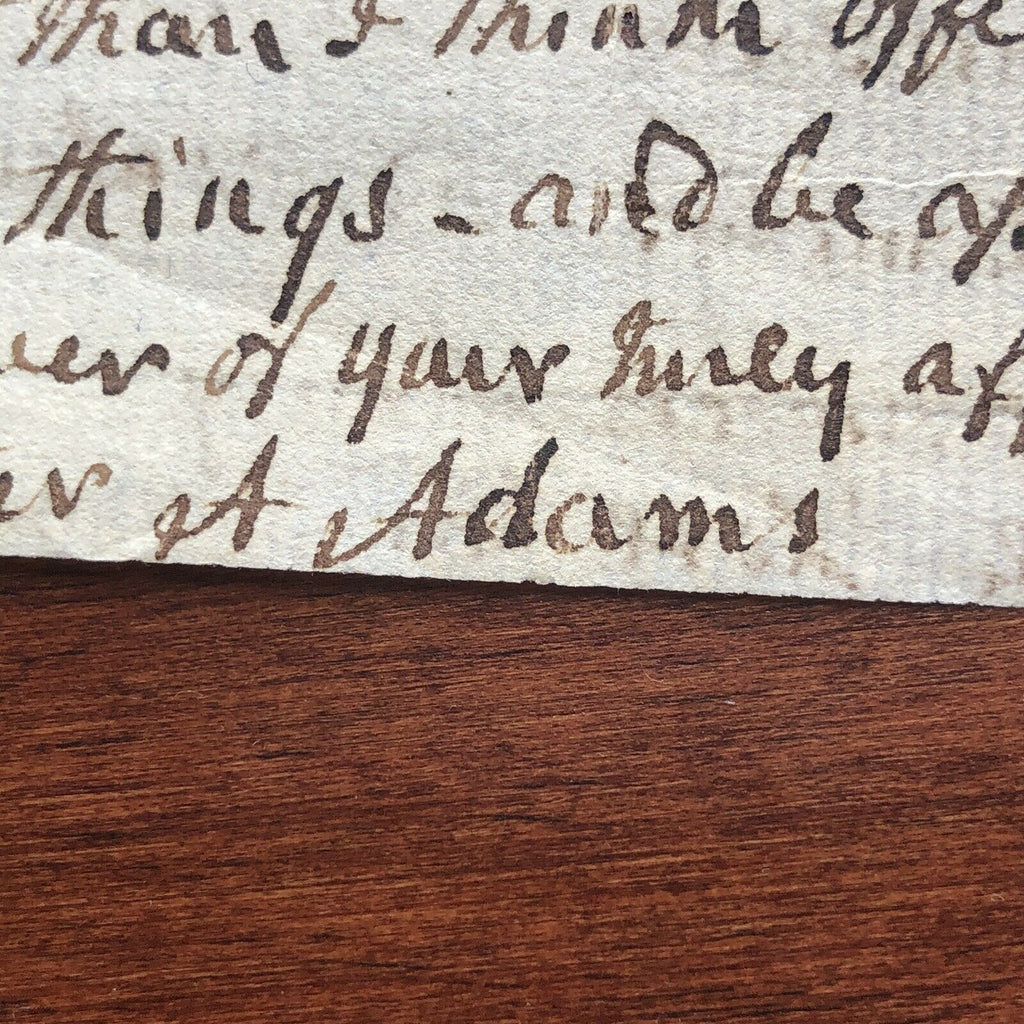 than I think offe
things - and be as
ver of your Truely aff
ter A Adams